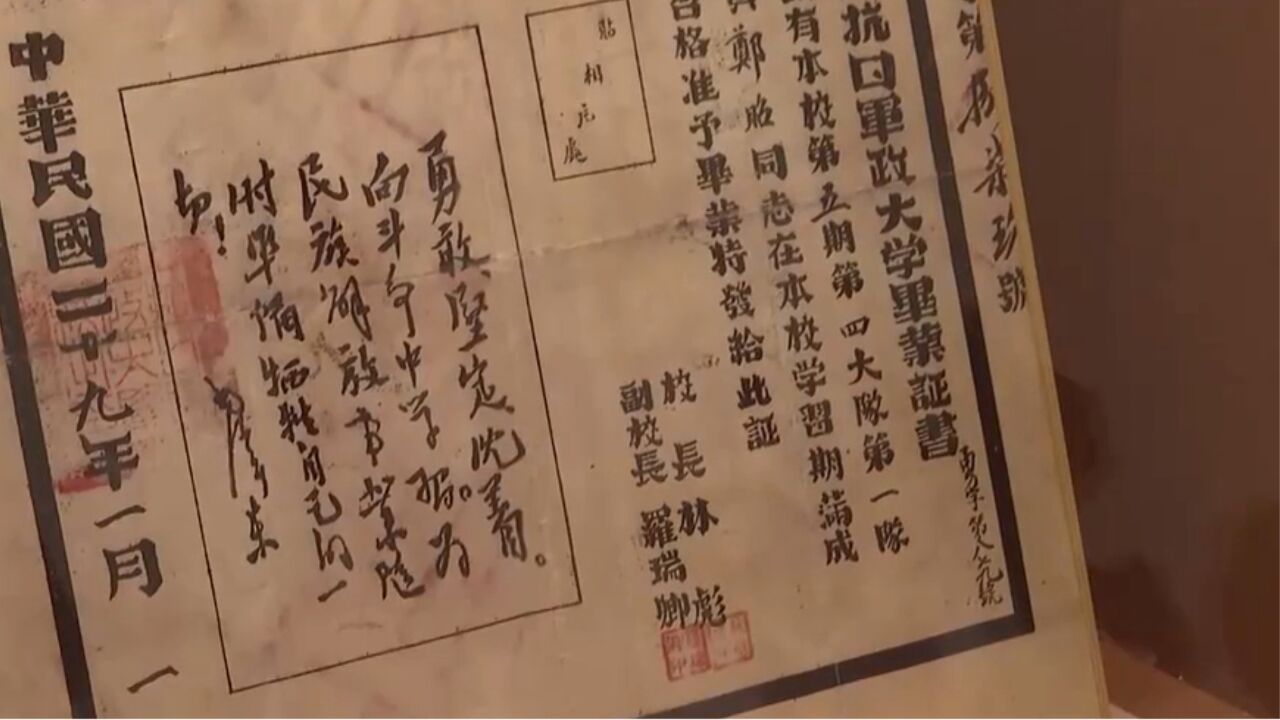 第
號
抗日軍政大学畢業証書
有本校第五期第四大隊第一隊
鄭昭同志在本校学習期滿成
合格准予畢業特發給此証
校長 林彪
副校長 羅瑞卿
貼相片處
勇敢、堅定、沈着。
向斗争中学習。为
民族解放事業随
时準備牺牲自己的一
切!
毛澤東
中華民國二十九年一月 一